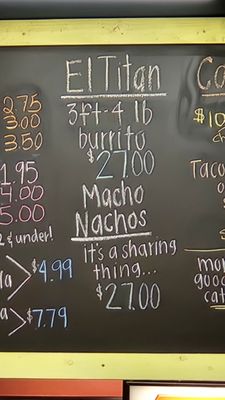 El Titan
3ft-4 lb
burrito
$27.00
Macho
Nachos
it's a sharing
thing...
$27.00
2.75
3.00
3.50
1.95
4.00
5.00
& under!
$4.99
$7.79
Co
$10
Taco
mor
good
cat